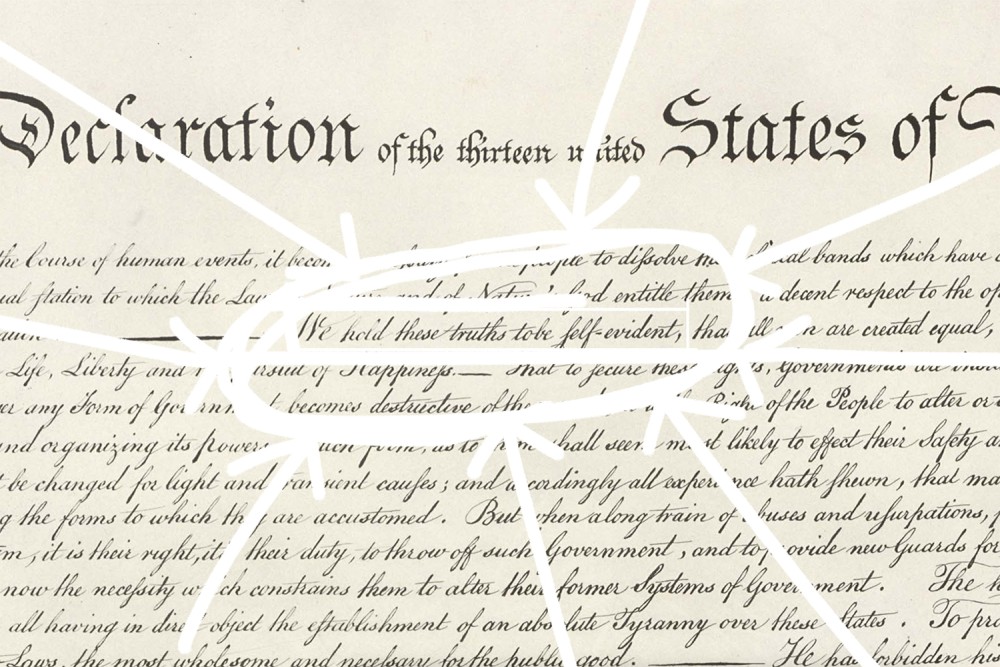 Declaration of the thirteen united States of
the Course of human events, it to diſsolve bands which have
ſtation to which the and of God entitle them decent respect to the
We hold these truths to be ſelf-evident, that all are created equal,
Life, Liberty and of Happineſs.— That to secure these Governments are
any Form of becomes destructive of the Right of the People to alter or
and organizing its powers form, as to shall seem most likely to effect their Safety
be changed for light and tranſient cauſes; and accordingly all experience hath ſhewn, that
the forms to which they are accustomed. But when a long train of abuses and uſurpations,
it is their right, it is their duty, to throw off such Government, and to provide new Guards for
now the neceſsity which constrains them to alter their former Systems of Government. The
all having in direct object the eſtablishment of an absolute Tyranny over these States. To
Laws, the most wholesome and neceſsary for the public good. He has forbidden his